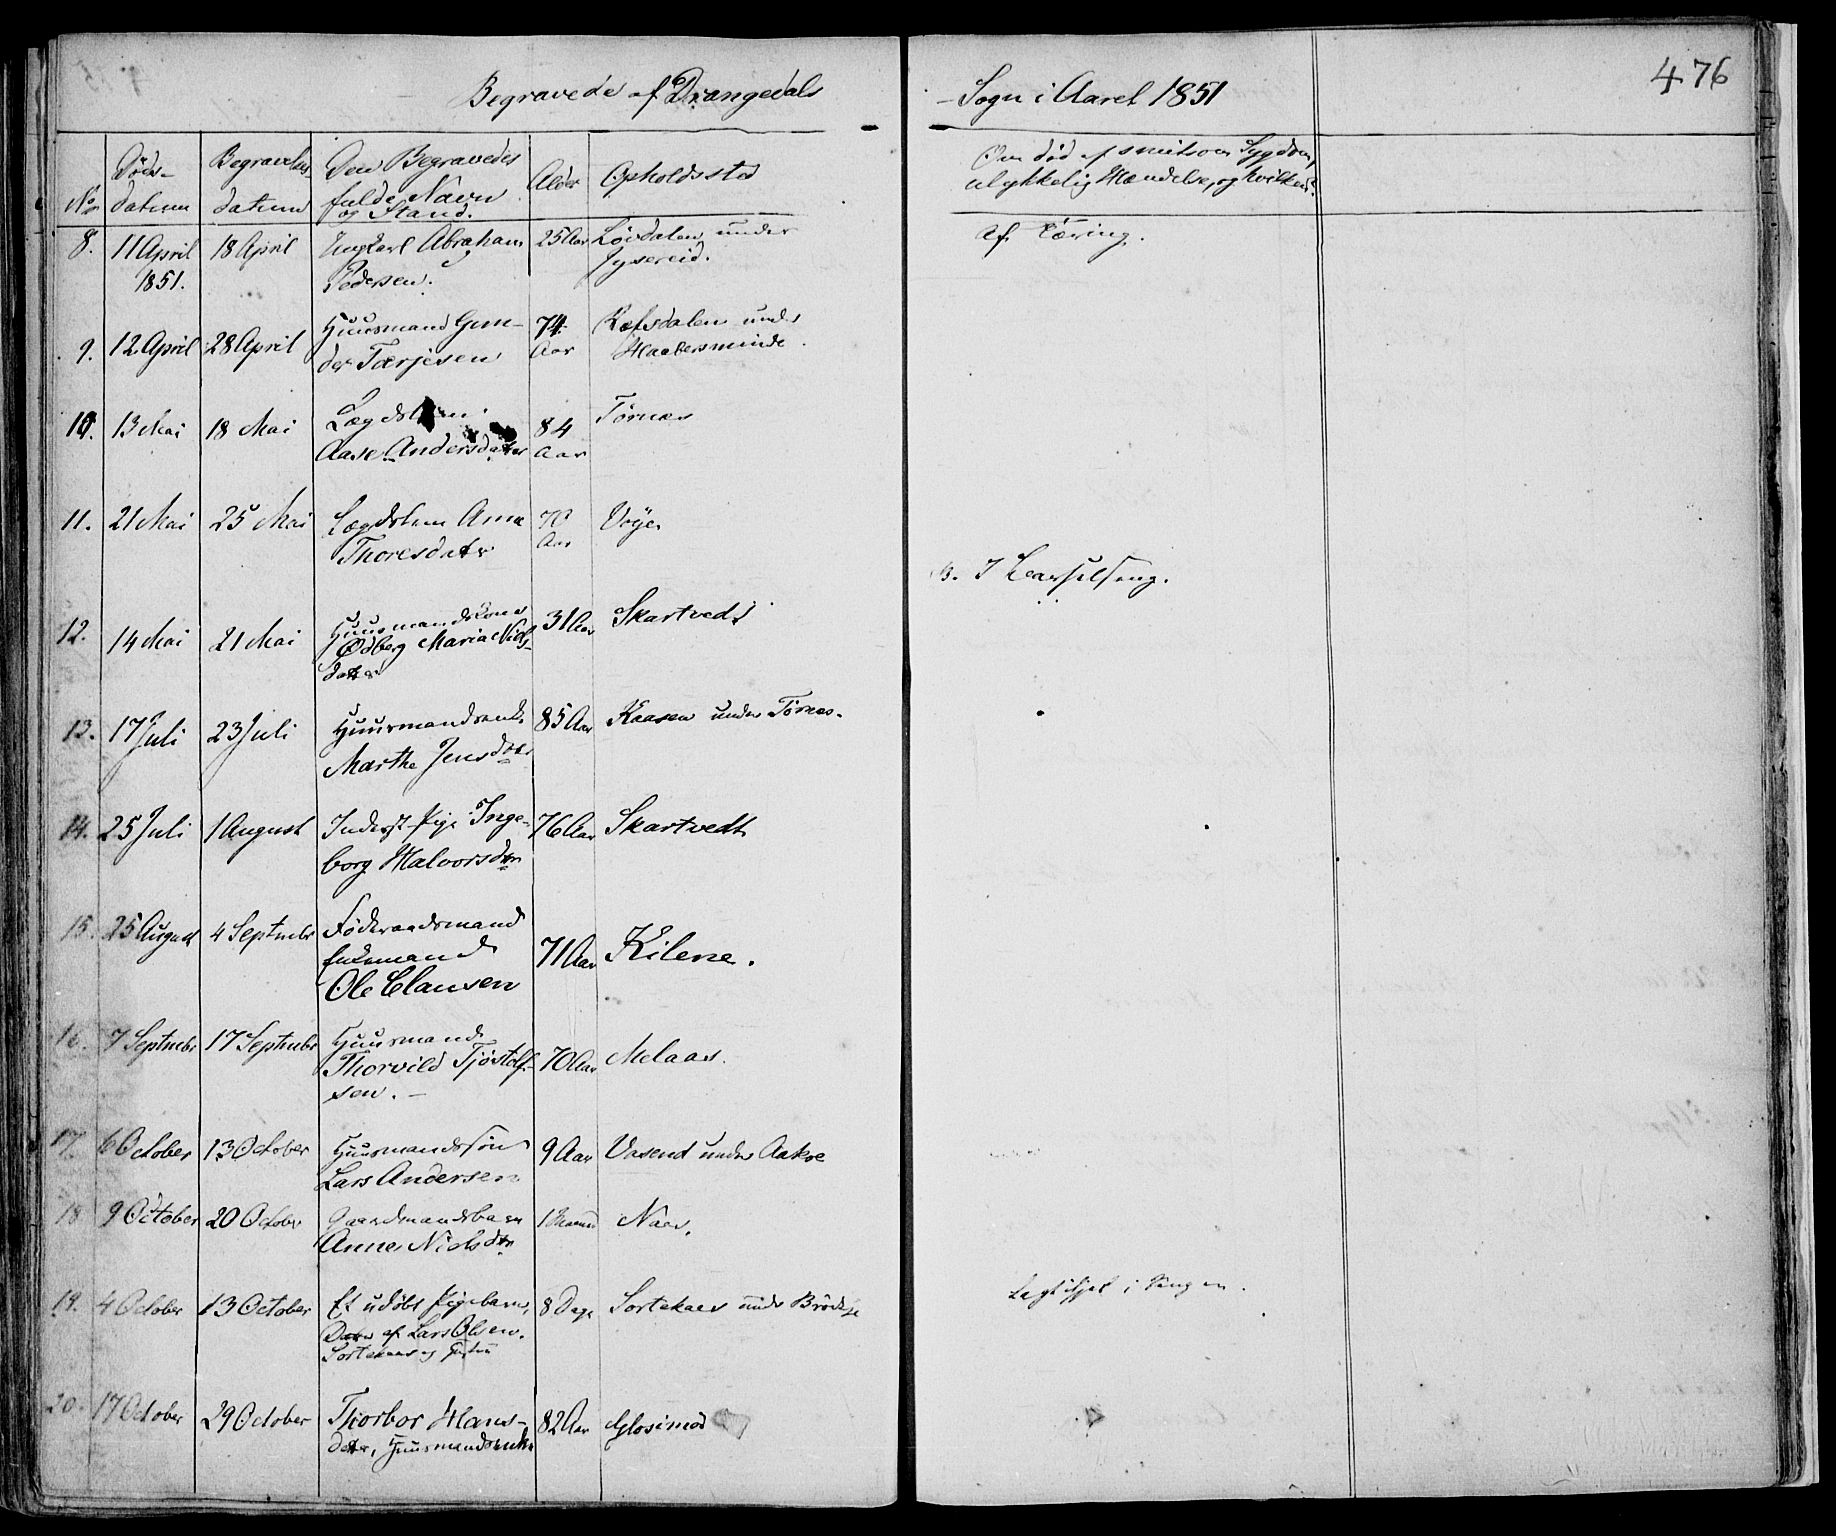 476
Begravede af Drangedals Sogn i Aaret 1851
No Døds- datum Begravelses datum Den Begravedes fulde Navn og Stand. Alder Opholdssted Om død af smitsom Sygdom, ulykkelig Hændelse, og hvilken?
8. 11 April 18 April Ungkarl Abraham 25 Aar Lövdalen under af Tæring.
1851. Pedersen. Gysereid.
9. 12 April 28 April Huusmand Gun- 74 Refsdalen under
der Tærjesen Aar Haabersminde.
10. 13 Mai 18 Mai Lægdslem 84 Törnes
Aase Andersdatter Aar
11. 21 Mai 25 Mai Lægdslem Anne 70 Voje
Thoresdatr Aar
12. 14 Mai 21 Mai Huusmandskone 31 Aar Skartvedt I Barselseng.
Odberg Maria Niels-
datter
13. 17 Juli 23 Juli Huusmandsenke 85 Aar Kaasen under Törnes.
Marthe Jensdatr
14. 25 Juli 1 August Inderst-Pige Inge- 76 Aar Skartvedt
borg Halvorsdtr
15. 25 August 4 Septmbr Föderaadsmand
Enkemand 71 Aar Kilene.
Ole Clausen
16. 7 Septmbr 17 Septmbr Huusmand
Thorvild Tjöstolf- 70 Aar Melaas.
sen.
17. 6 October 13 October Huusmandssön 9 Aar Vasend under Aakre
Lars Andersen
18 9 October 20 Octobr Gaardmandsbarn 1 Maaned Naes.
Anne Nielsdtr
19. 4 October 13 October Et udøbt Pigebarn, 8 Dage Sortekaes under Brödsje Lagt ihjel i Sengen.
Datter af Lars Olsen.
Sortekaas og Hustru
20. 17 October 29 October Thorbor Hans- 82 Aar Glosimod
datter, Huusmandsenke